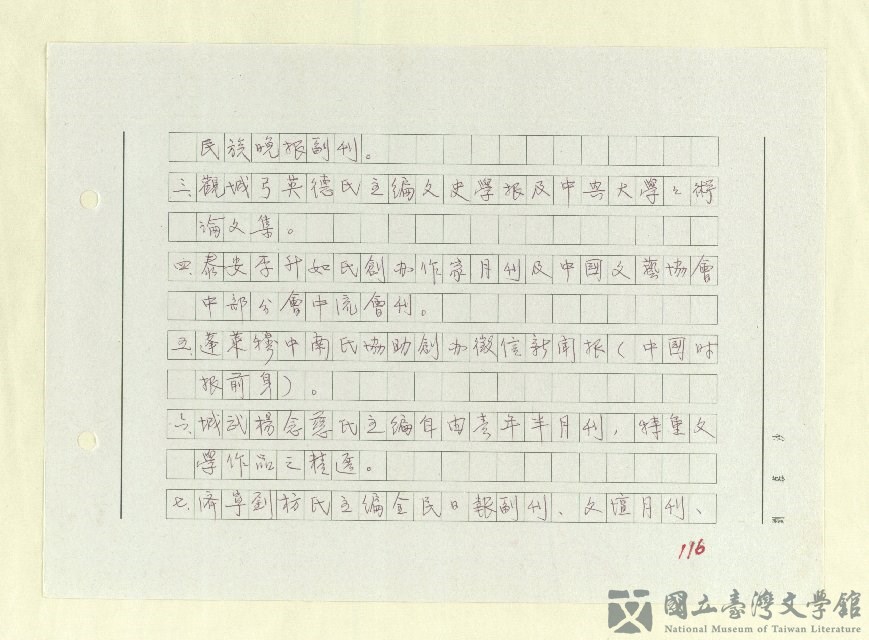 民族晚报副刊。
三、觀城弓英德氏主編文史學报及中興大學々術
論文集。
四、泰安李升如氏創办作家月刊及中國文藝協會
中部分會中流會刊。
五、蓬萊穆中南氏協助創办徵信新闻报(中國时
报前身)。
六、城武楊念慈氏主編自由青年半月刊,特重文
學作品之精选。
七、济寧刘枋氏主編全民日報副刊、文壇月刊、
116
國立臺灣文學館
National Museum of Taiwan Literature